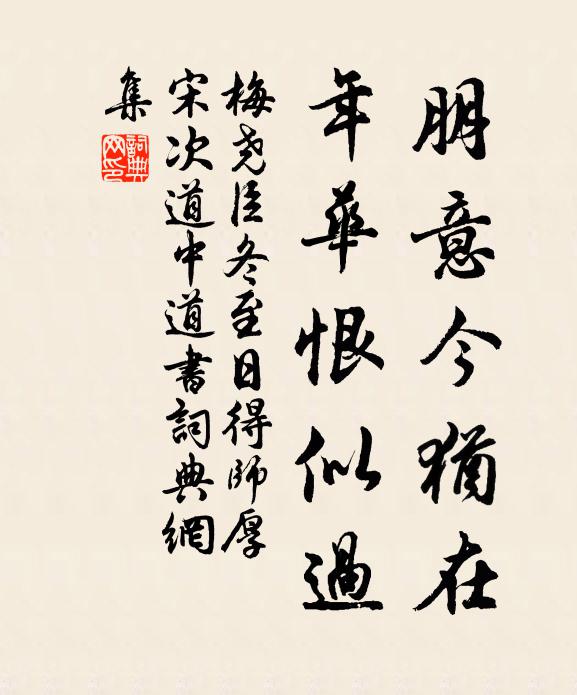 朋意今猶在
年華恨似過
梅堯臣冬至日得師厚
宋次道中道書詞典網
集
詞典網印